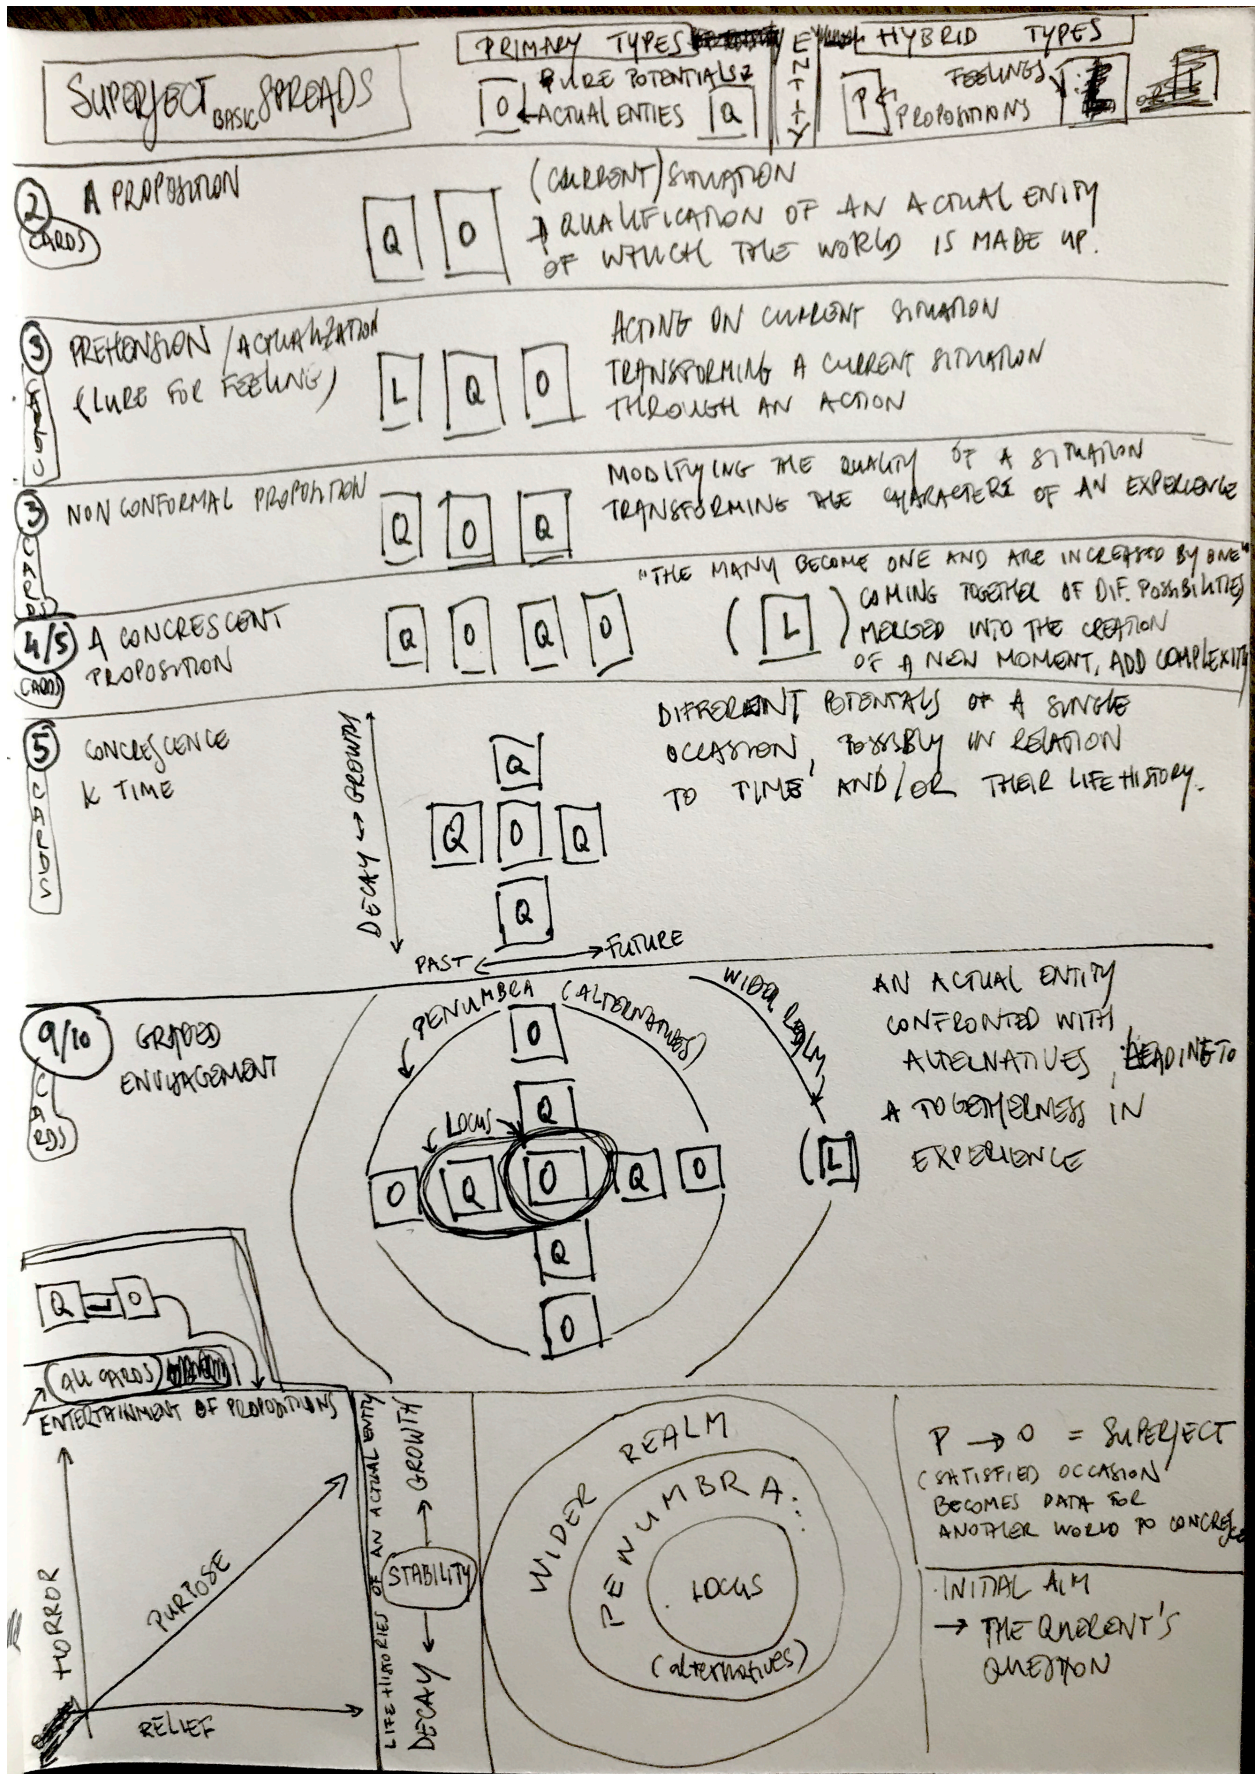 SUPERJECT BASIC SPREADS
PRIMARY TYPES
ENTITY
HYBRID TYPES
PURE POTENTIALS
O
ACTUAL ENTIES
Q
P
FEELINGS
PROPOSITIONS
L
2 CARDS
A PROPOSITION
Q O
(CURRENT) SITUATION
QUALIFICATION OF AN ACTUAL ENTITY
OF WHICH THE WORLD IS MADE UP.
3 CARDS
PREHENSION / ACTUALIZATION
(LURE FOR FEELING)
L Q O
ACTING ON CURRENT SITUATION
TRANSFORMING A CURRENT SITUATION
THROUGH AN ACTION
3 CARDS
NON CONFORMAL PROPOSITION
Q O Q
MODIFYING THE QUALITY OF A SITUATION
TRANSFORMING THE CHARACTER OF AN EXPERIENCE
4/5 CARDS
A CONCRESCENT
PROPOSITION
Q O Q O
(L)
"THE MANY BECOME ONE AND ARE INCREASED BY ONE"
COMING TOGETHER OF DIF. POSSIBILITIES
MERGED INTO THE CREATION
OF A NEW MOMENT, ADD COMPLEXITY
5 CARDS
CONCRESCENCE
& TIME
DECAY ↔ GROWTH
Q
Q O Q
Q
PAST ↔ FUTURE
DIFFERENT POTENTIALS OF A SINGLE
OCCASION, POSSIBLY IN RELATION
TO TIME AND/OR THEIR LIFE HISTORY.
9/10 CARDS
GRADED
ENVISAGEMENT
PENUMBRA (ALTERNATIVES)
WIDER REALM
O
Q
LOCUS
O Q O Q O
(L)
Q
O
AN ACTUAL ENTITY
CONFRONTED WITH
ALTERNATIVES, LEADING TO
A TOGETHERNESS IN
EXPERIENCE
Q L O
ALL CARDS
ENTERTAINMENT OF PROPOSITIONS
HORROR
PURPOSE
RELIEF
LIFE HISTORIES OF AN ACTUAL ENTITY
DECAY ← STABILITY → GROWTH
WIDER REALM
PENUMBRA...
LOCUS
(alternatives)
P → O = SUPERJECT
(SATISFIED OCCASION
BECOMES DATA FOR
ANOTHER WORLD TO CONCRESCE
. INITIAL AIM
→ THE QUERENT'S
QUESTION